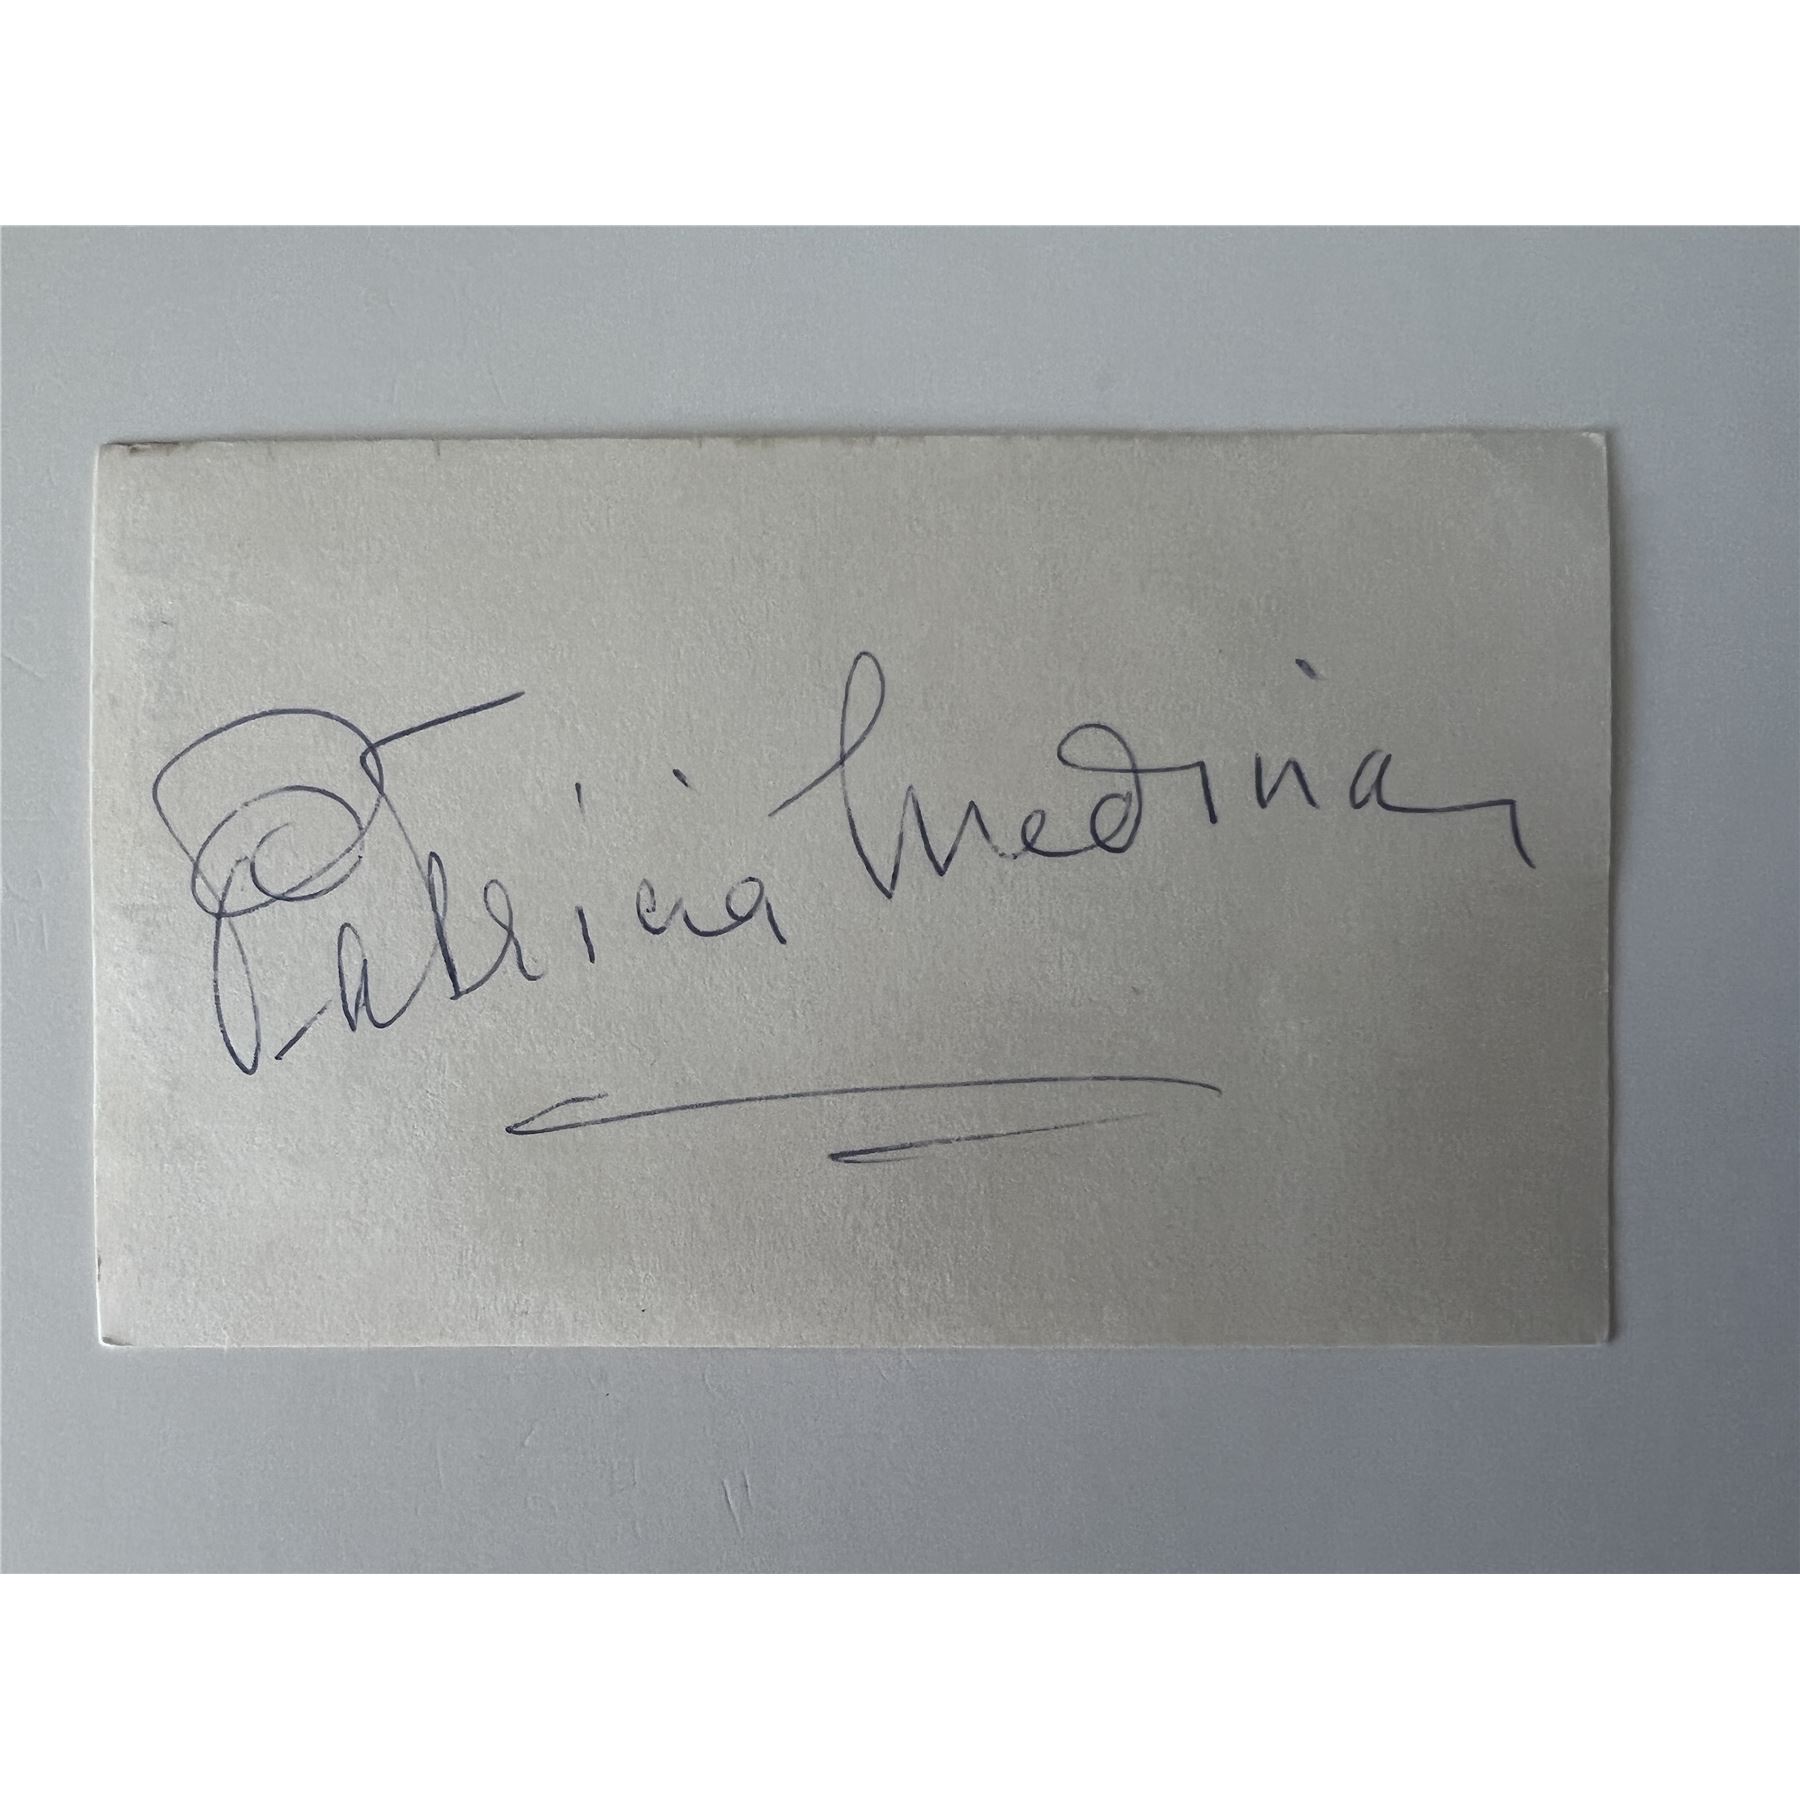 Patricia Medina